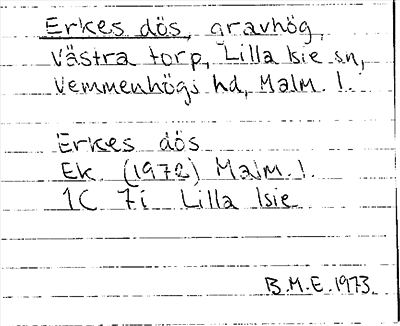 Erkes dös, gravhög,
Västra torp, Lilla Isie sn,
Vemmenhögs hd, Malm. l.
Erkes dös
Ek. (1972) Malm. l.
1C 7i Lilla Isie
B.M.E. 1973.